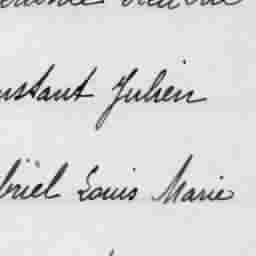 ustant Julien
briel Louis Marie